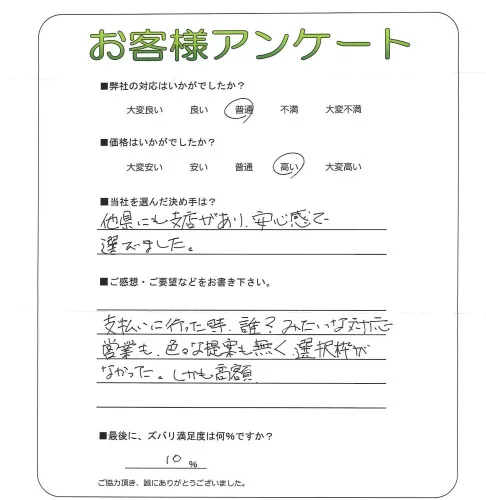 お客様アンケート
■弊社の対応はいかがでしたか?
大変良い 良い 普通 不満 大変不満
■価格はいかがでしたか?
大変安い 安い 普通 高い 大変高い
■当社を選んだ決め手は?
他県にも支店があり、安心感で
選びました。
■ご感想・ご要望などをお書き下さい。
支払いに行った時、誰?みたいな対応
営業も、色々な提案も無く、選択枠が
なかった。しかも高額
■最後に、ズバリ満足度は何%ですか?
10 %
ご協力頂き、誠にありがとうございました。